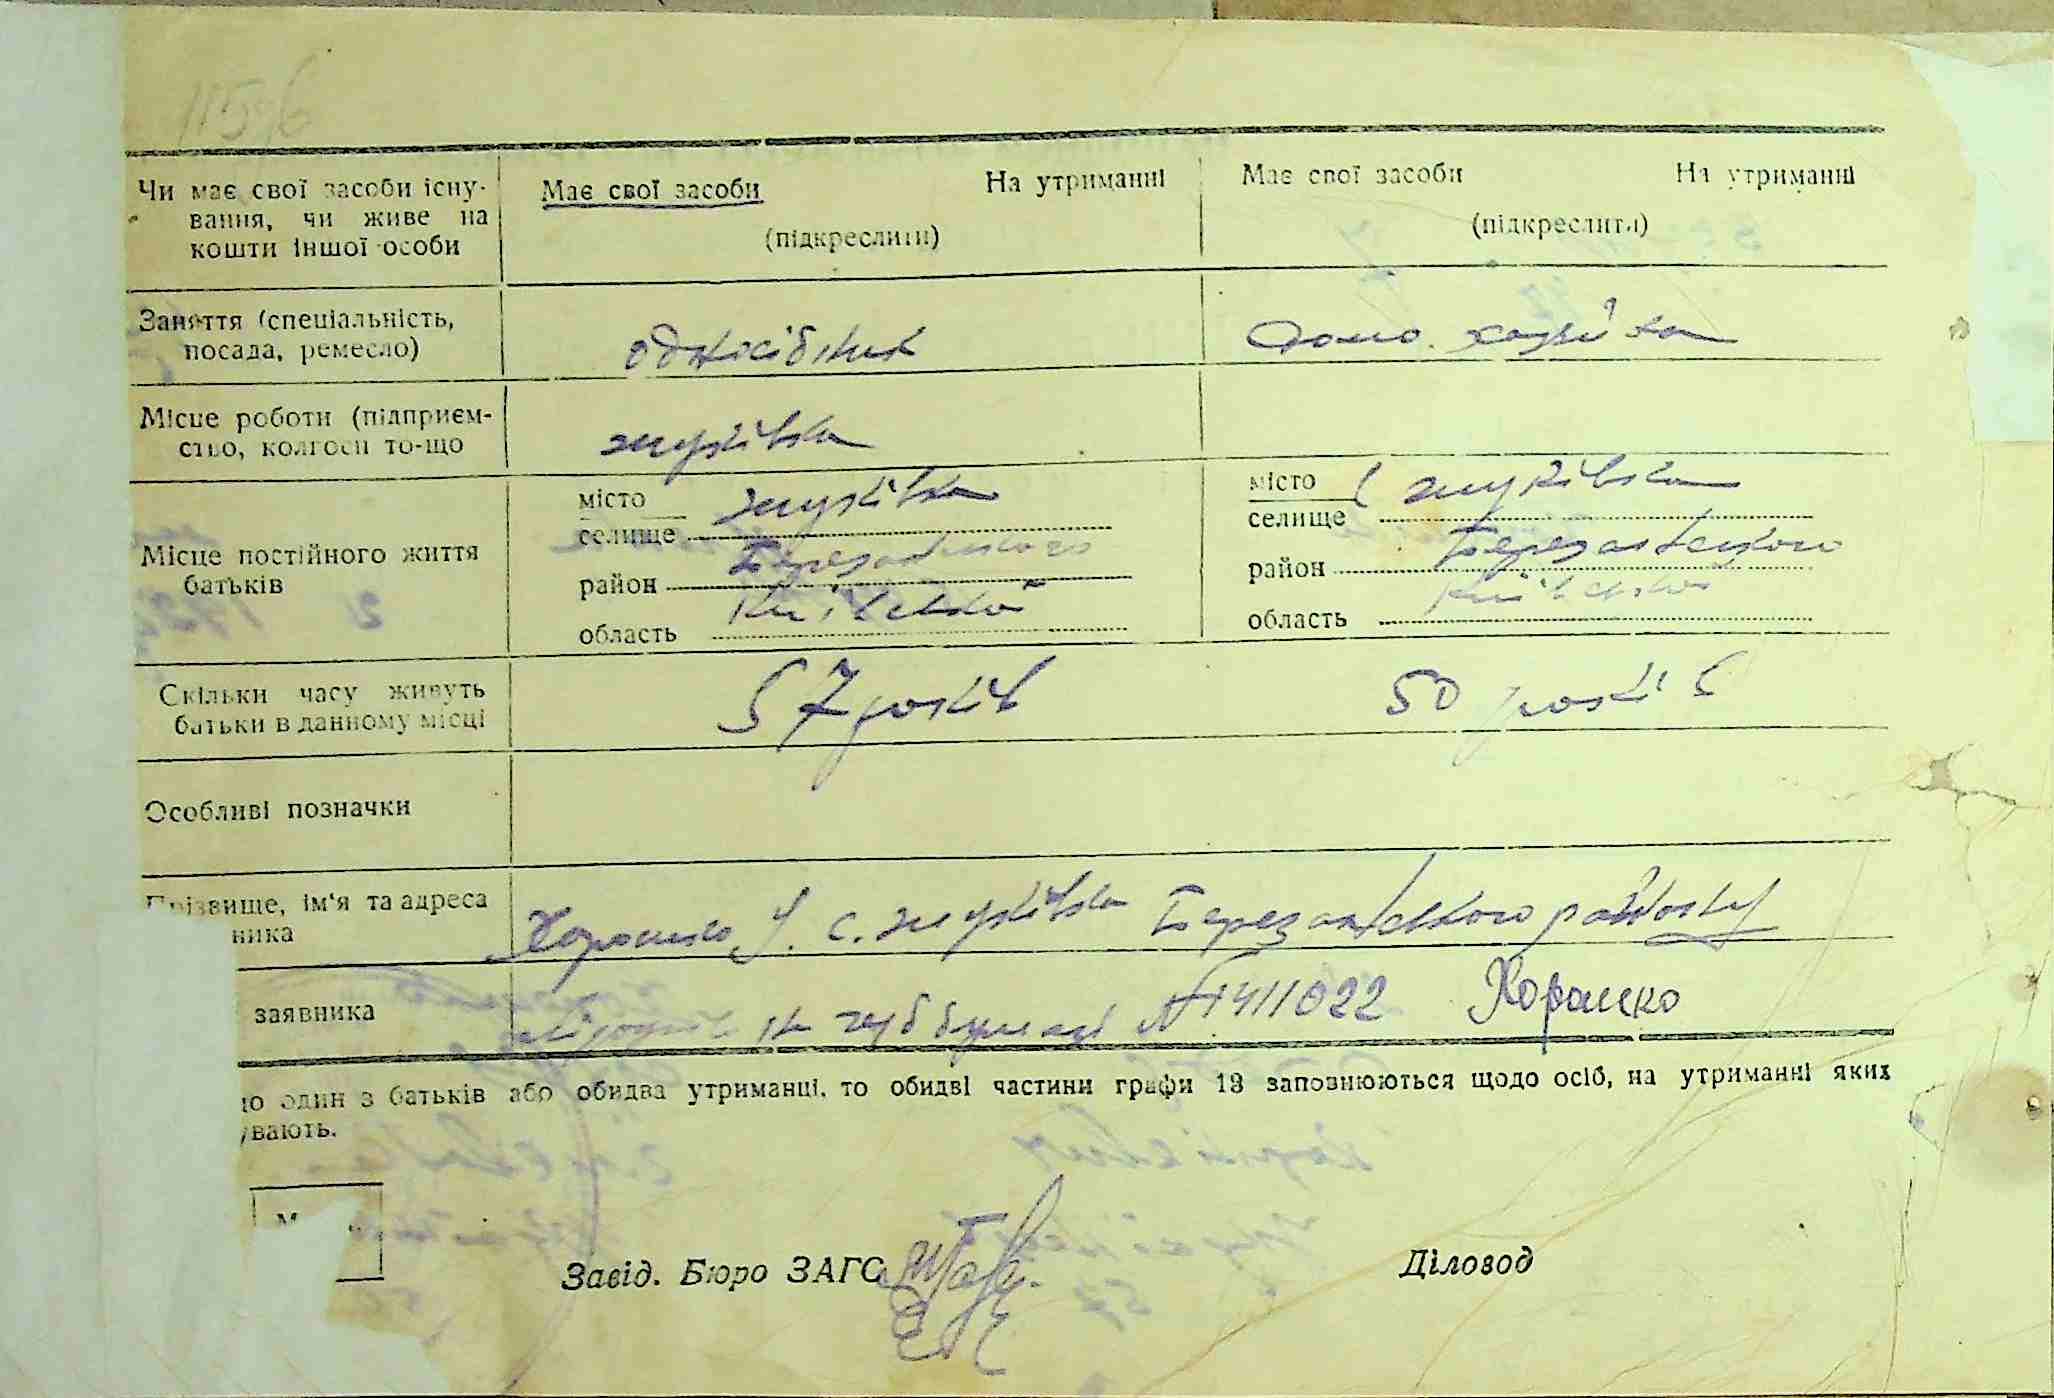 Чи має свої засоби існу-
вання, чи живе на
кошти іншої особи
Має свої засоби На утриманні
(підкреслити)
Має свої засоби На утриманні
(підкреслити)
Заняття (спеціальність,
посада, ремесло)
односібник
Домо. хазяйка
Місце роботи (підприєм-
ство, колгосп то-що
Жуківка
Місце постійного життя
батьків
місто
селище Жуківка
район Березанського
область Київської
місто
селище с Жуківка
район Березанського
область Київської
Скільки часу живуть
батьки в данному місці
57 років
50 років
Особливі позначки
Прізвище, ім'я та адреса
ника
Хорошко У. с. Жуківка Березанського району
заявника
на герббумазі № 1411022 Хорошко
о один з батьків або обидва утриманці, то обидві частини графи 13 заповнюються щодо осіб, на утриманні яких
вають.
М
Завід. Бюро ЗАГС
Діловод